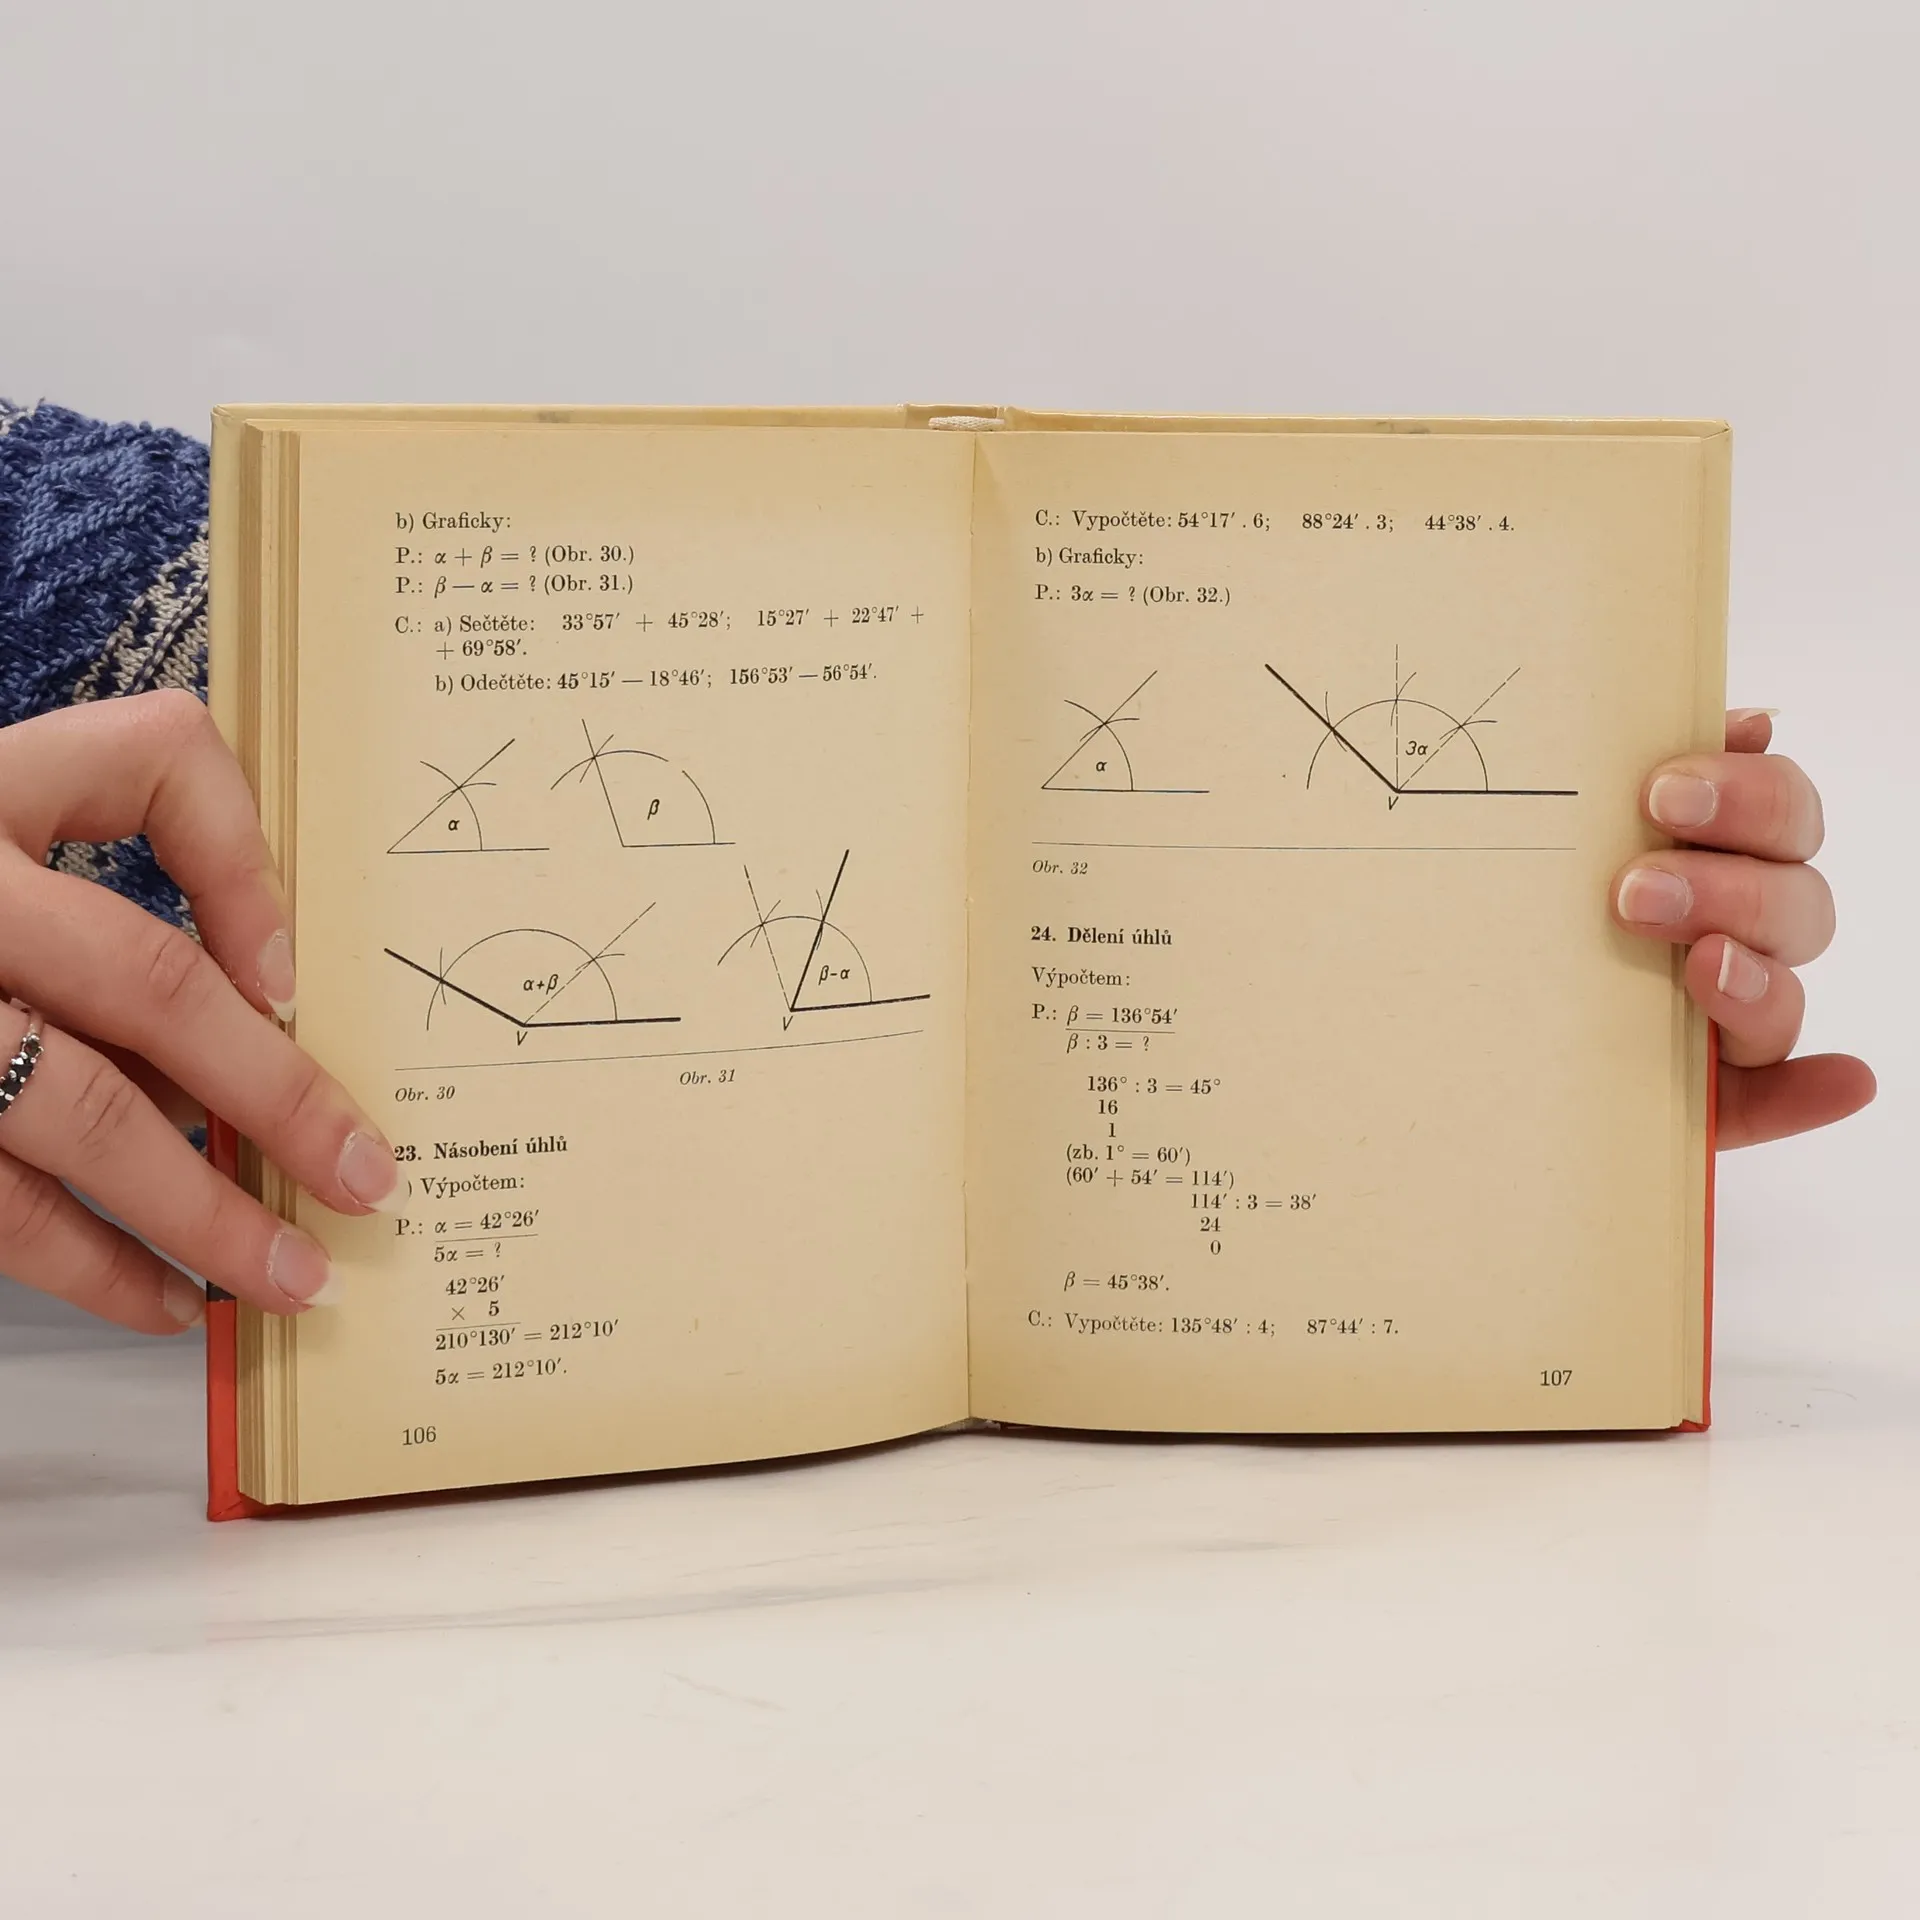 b) Graficky:
P.: α + β = ? (Obr. 30.)
P.: β — α = ? (Obr. 31.)
C.: a) Sečtěte: 33°57′ + 45°28′; 15°27′ + 22°47′ +
+ 69°58′.
b) Odečtěte: 45°15′ — 18°46′; 156°53′ — 56°54′.
α
β
α+β
V
β-α
V
Obr. 30
Obr. 31
23. Násobení úhlů
) Výpočtem:
P.: α = 42°26′
5α = ?
42°26′
× 5
210°130′ = 212°10′
5α = 212°10′.
106
C.: Vypočtěte: 54°17′ . 6; 88°24′ . 3; 44°38′ . 4.
b) Graficky:
P.: 3α = ? (Obr. 32.)
α
3α
V
Obr. 32
24. Dělení úhlů
Výpočtem:
P.: β = 136°54′
β : 3 = ?
136° : 3 = 45°
16
1
(zb. 1° = 60′)
(60′ + 54′ = 114′)
114′ : 3 = 38′
24
0
β = 45°38′.
C.: Vypočtěte: 135°48′ : 4; 87°44′ : 7.
107